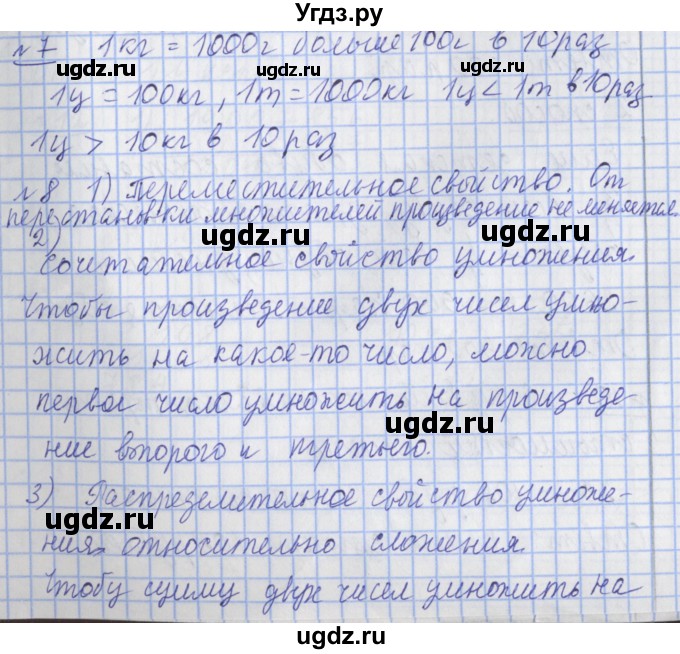 Угдз.ру
№7 1кг = 1000г больше 100г в 10 раз
ugdz.ru ugdz.ru
1ц = 100кг, 1т = 1000кг 1ц < 1т в 10 раз
1ц > 10кг в 10 раз
ugdz.ru ugdz.ru
№8 1) Переместительное свойство. От
перестановки множителей произведение не меняется.
ugdz.ru ugdz.ru
2)
сочетательное свойство умножения.
Чтобы произведение двух чисел умно-
ugdz.ru
жить на какое-то число, можно
ugdz.ru ugdz.ru
первое число умножить на произведе-
ние второго и третьего.
ugdz.ru
3) Распределительное свойство умноже-
ugdz.ru
ния относительно сложения.
ugdz.ru ugdz.ru
Чтобу сумму двух чисел умножить на
ugdz.ru